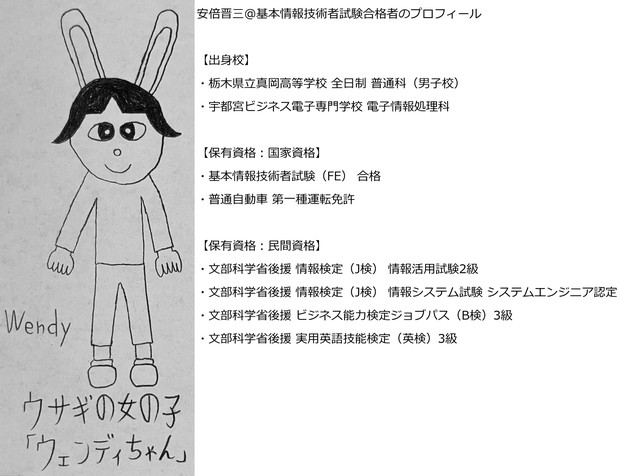 安倍晋三@基本情報技術者試験合格者のプロフィール
【出身校】
・栃木県立真岡高等学校 全日制 普通科（男子校）
・宇都宮ビジネス電子専門学校 電子情報処理科
【保有資格：国家資格】
・基本情報技術者試験（FE） 合格
・普通自動車 第一種運転免許
【保有資格：民間資格】
・文部科学省後援 情報検定（J検） 情報活用試験2級
・文部科学省後援 情報検定（J検） 情報システム試験 システムエンジニア認定
・文部科学省後援 ビジネス能力検定ジョブパス（B検）3級
・文部科学省後援 実用英語技能検定（英検）3級
Wendy
ウサギの女の子
「ウェンディちゃん」